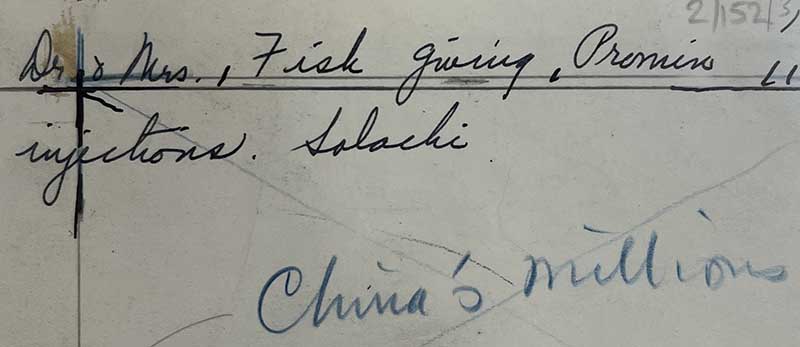 2/152/3,
Dr. & Mrs., Fisk giving, Promin
injections. Salachi
China's Millions